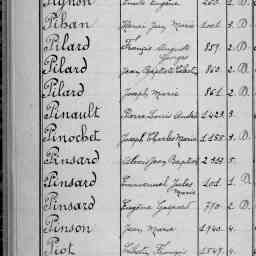 Pignon Emile Eugène
Pihan Henri Jean Marie 1001 3. D.
Pilard François Auguste Georges 857 2. D.
Pilard Jean Baptiste Célestin 860 2. D.
Pilard Joseph Marie 861 2. D.
Pinault Pierre Louis André 1423 3.
Pinochet Joseph Charles Marie 1155 3. D.
Pinsard Alexis Jean Baptiste 5.
Pinsard Emmanuel Jules Marie 101 1. D.
Pinsard Eugène Gaspard 790 2. D
Pinson Jean Marie 1940 4.
Piot François 1549 4.